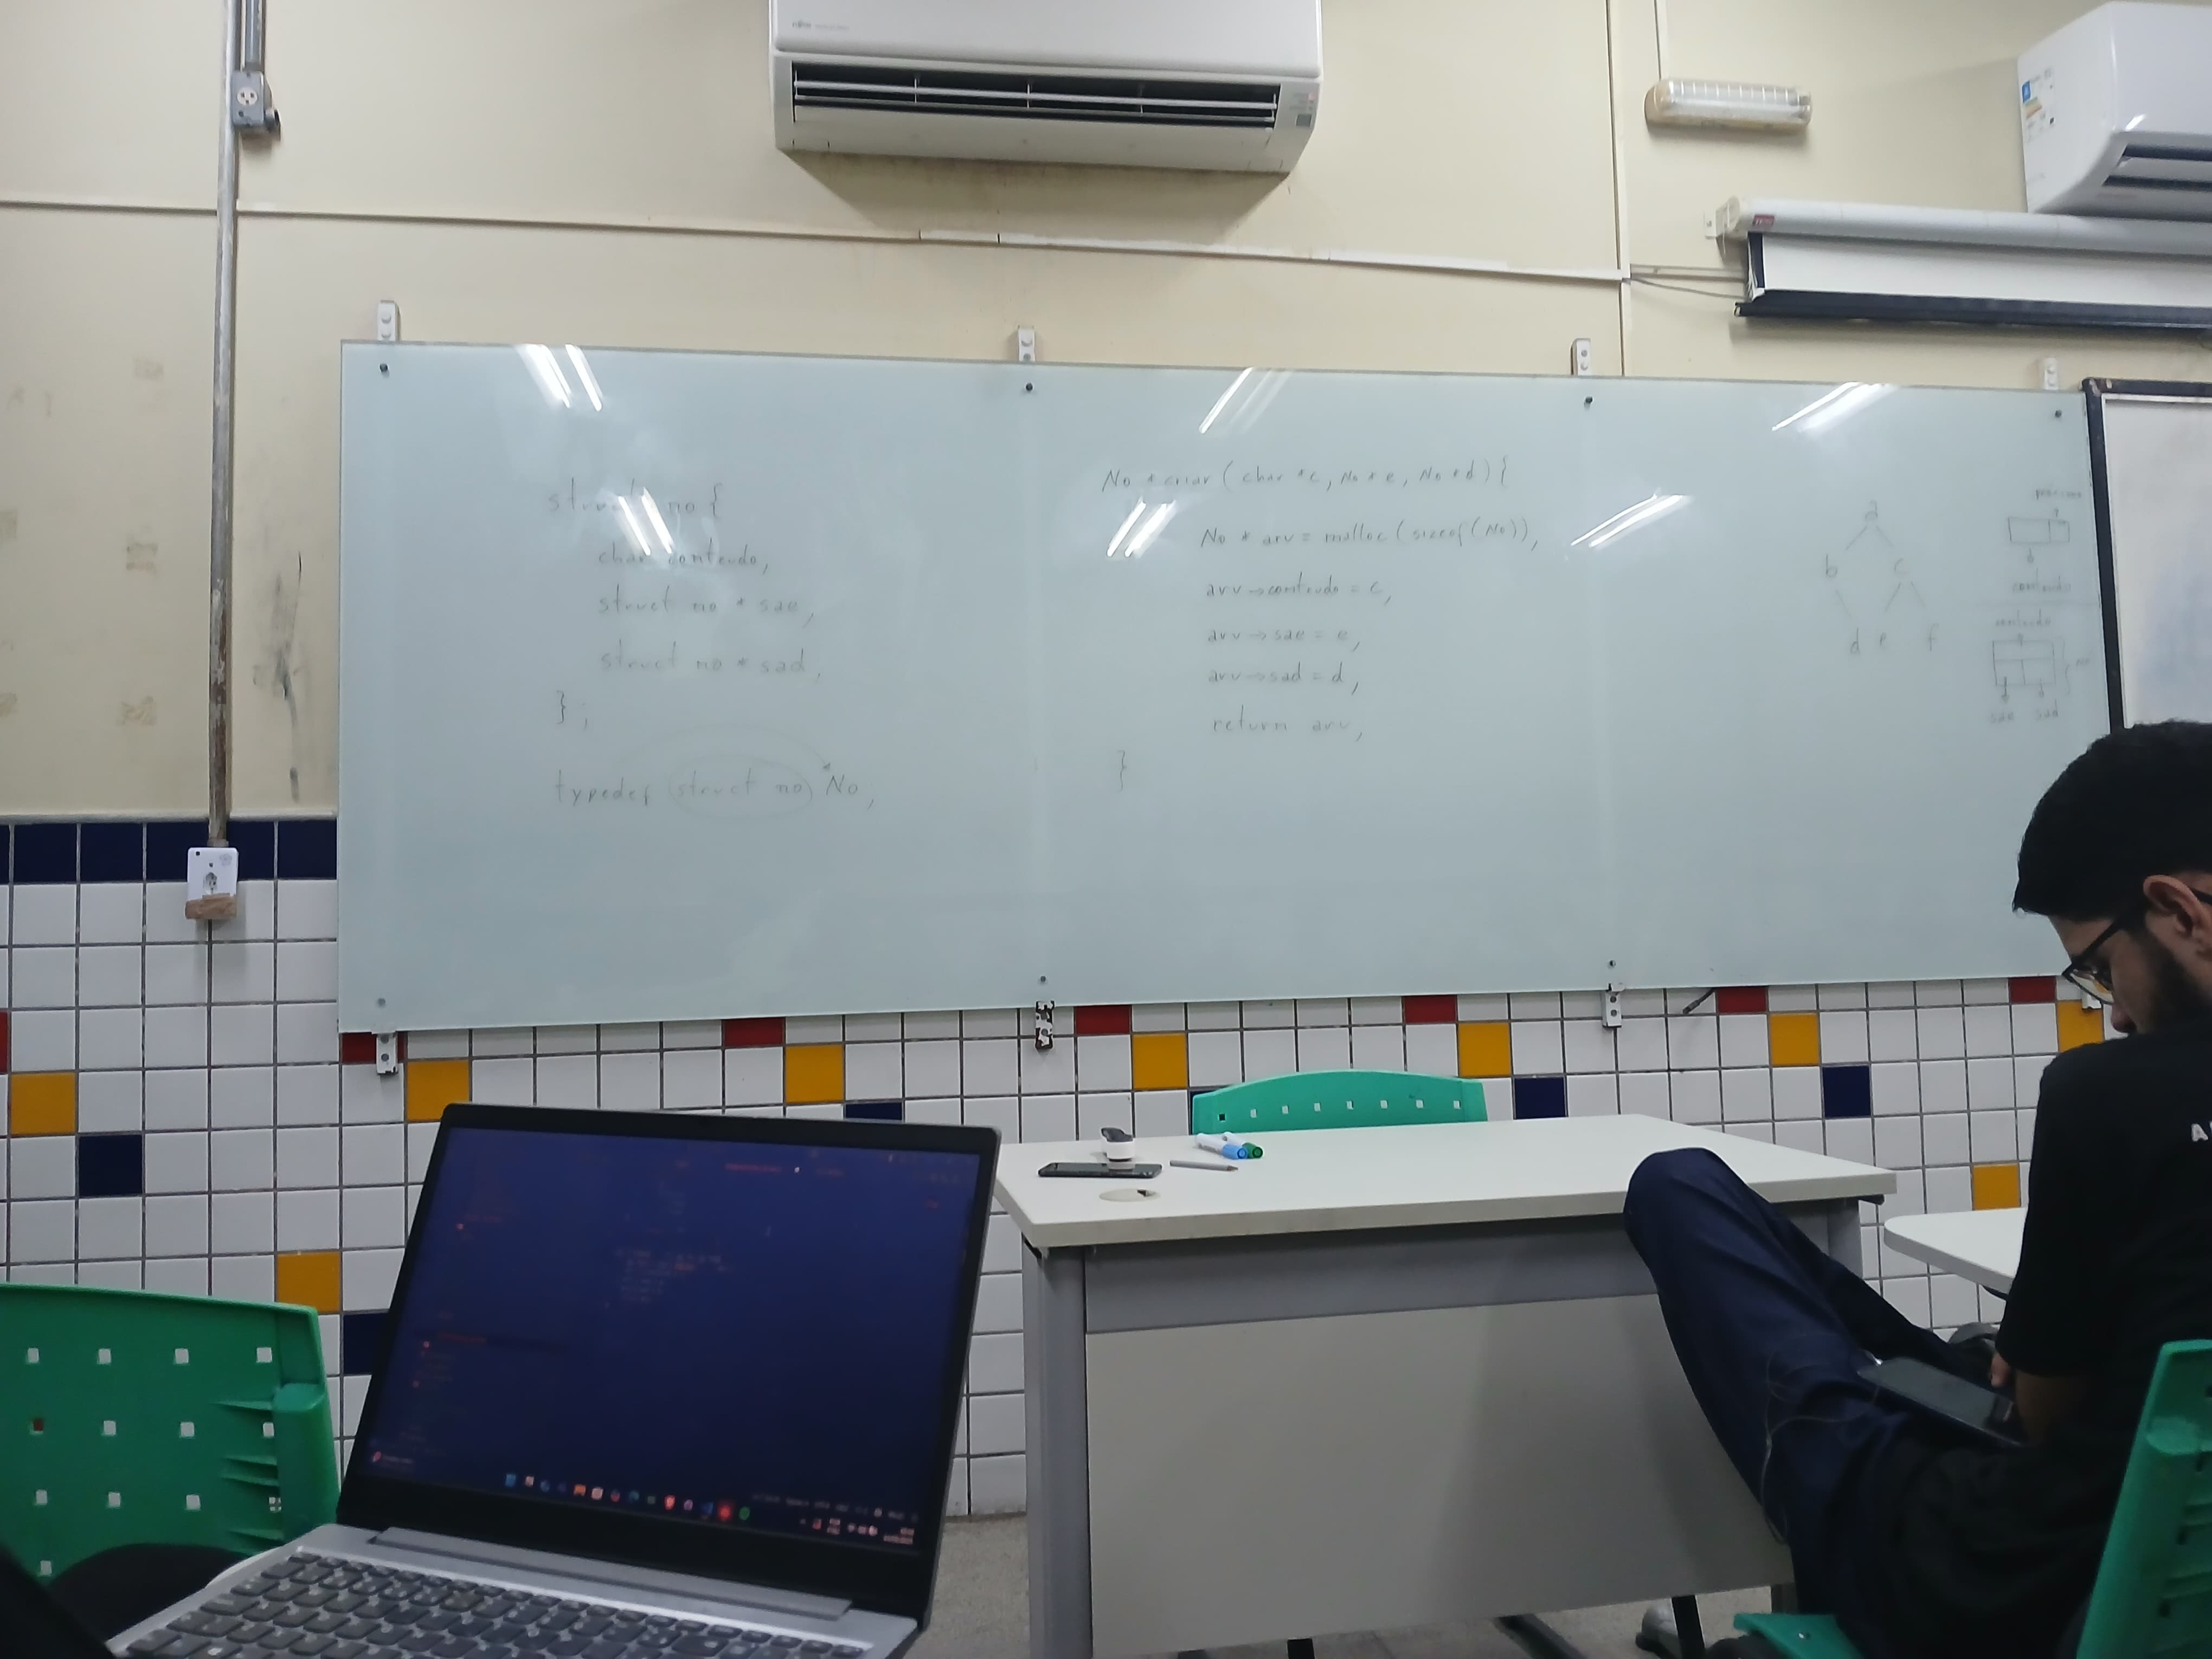 struct no {
char conteudo;
struct no * sae;
struct no * sad;
};
typedef struct no No;
No * criar (char *c, No * e, No * d) {
No * arv = malloc (sizeof(No));
arv->conteudo = c;
arv->sae = e;
arv->sad = d;
return arv;
}
a
b c
d e f
próximo
conteudo
conteudo
no
sae sad